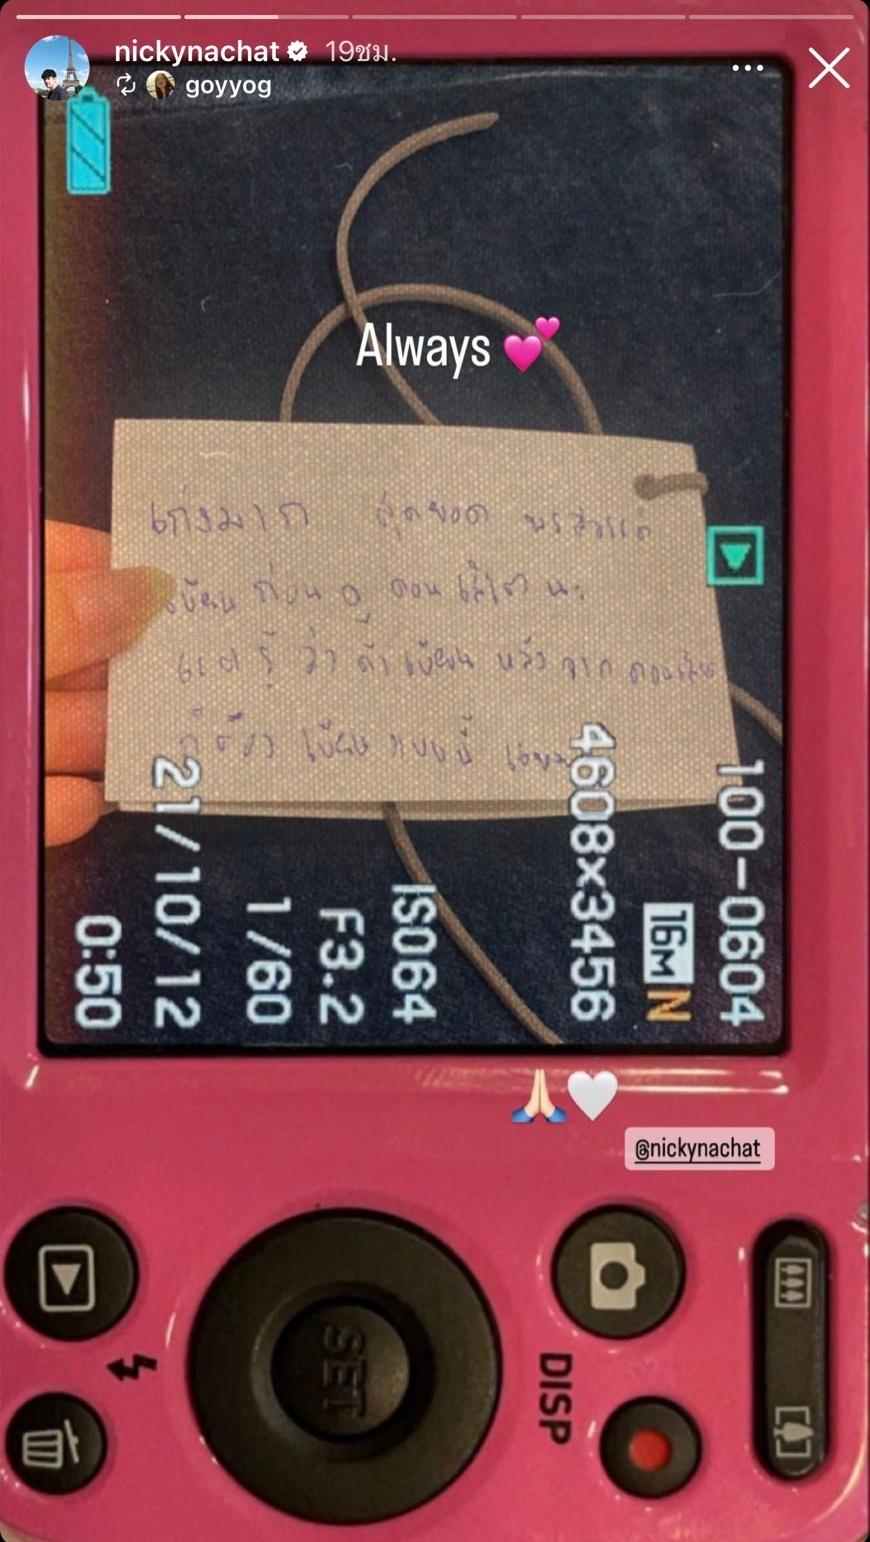 nickynachat 19ชม.
goyyog
Always 💕
เก่งมาก สุดยอด พรสวรรค์
เขียนก่อนดู คอนเสิร์ต นะ
แต่ รู้ ว่า ถ้า เขียน หลัง จาก คอนเสิร์ต
ก็ต้อง เขียน แบบนี้
100-0604
16M N
4608x3456
ISO64
F3.2
1/60
21/10/12
0:50
🙏🏻🤍
@nickynachat
SET
DISP